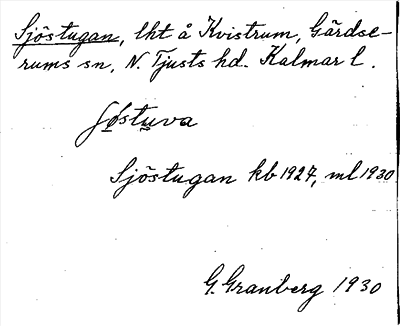 Sjöstugan, lht å Kvistrum, Gärdse-
rums sn, N. Tjusts hd. Kalmar l.
Sjöstugan kb 1927, ml 1930
G. Granberg 1930